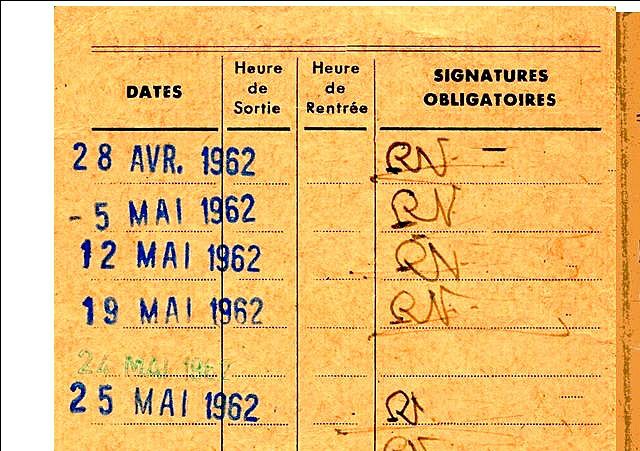 DATES Heure de Sortie Heure de Rentrée SIGNATURES OBLIGATOIRES
28 AVR. 1962 RN
- 5 MAI 1962 RN
12 MAI 1962 RN
19 MAI 1962 RN
24 MAI 1962
25 MAI 1962 RN